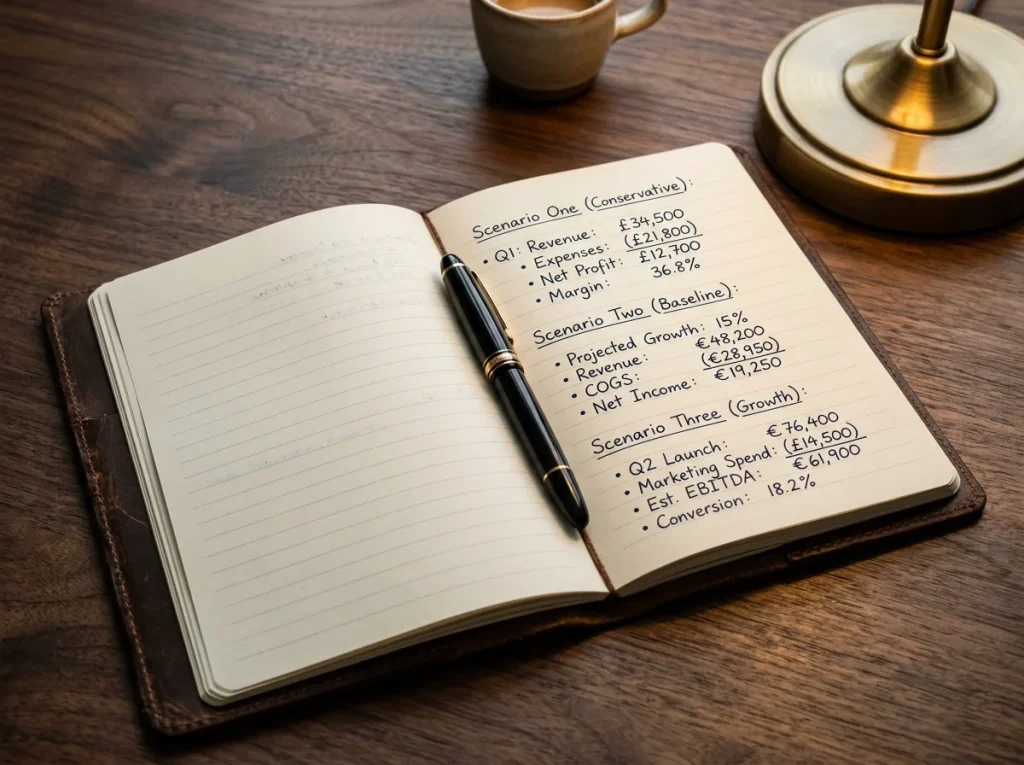 Scenario One (Conservative):
• Q1: Revenue: £34,500
• Expenses: (£21,800)
• Net Profit: £12,700
• Margin: 36.8%
Scenario Two (Baseline):
• Projected Growth: 15%
• Revenue: €48,200
• COGS: (€28,950)
• Net Income: €19,250
Scenario Three (Growth):
• Q2 Launch: €76,400
• Marketing Spend: (£14,500)
• Est. EBITDA: €61,900
• Conversion: 18.2%